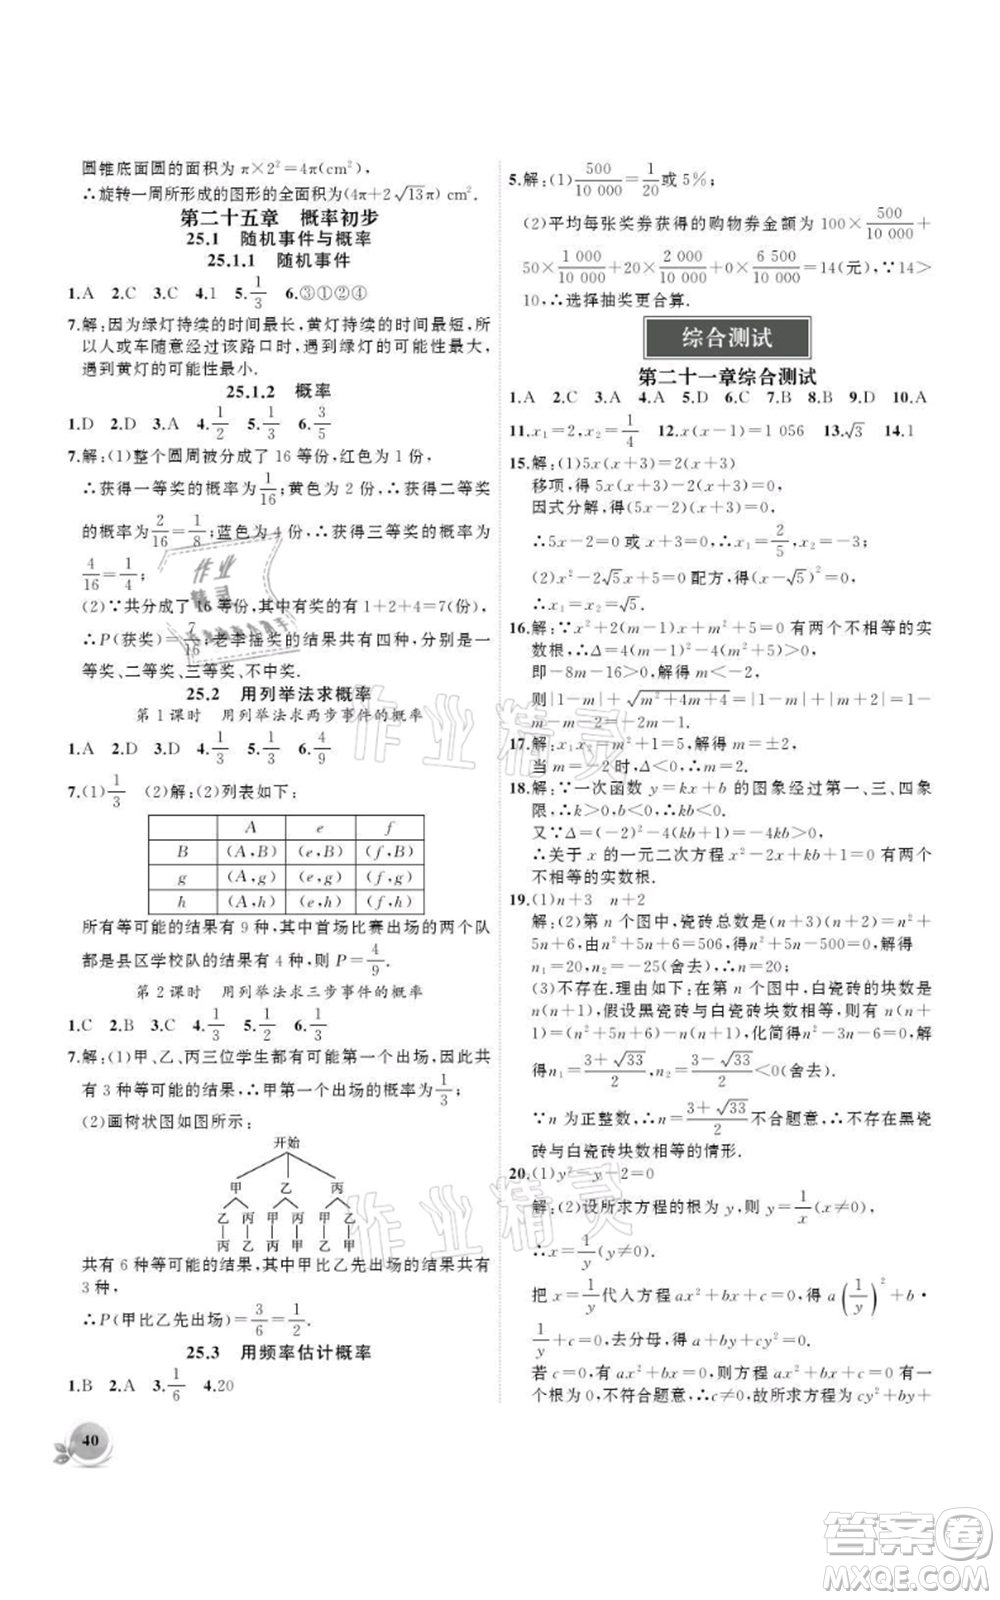 圆锥底面圆的面积为 π×2²=4π(cm²),
∴旋转一周所形成的图形的全面积为(4π+2√13π) cm².
第二十五章 概率初步
25.1 随机事件与概率
25.1.1 随机事件
1.A 2.C 3.C 4.1 5.1/3 6.③①②④
7.解:因为绿灯持续的时间最长,黄灯持续的时间最短,所
以人或车随意经过该路口时,遇到绿灯的可能性最大,
遇到黄灯的可能性最小.
25.1.2 概率
1.D 2.D 3.A 4.1/2 5.1/3 6.3/5
7.解:(1)整个圆周被分成了 16 等份,红色为 1 份,
∴获得一等奖的概率为1/16;黄色为 2 份,∴获得二等奖
的概率为2/16=1/8;蓝色为 4 份,∴获得三等奖的概率为
4/16=1/4;
(2)∵共分成了 16 等份,其中有奖的有 1+2+4=7(份),
∴P(获奖)=7/16;老李摇奖的结果共有四种,分别是一
等奖、二等奖、三等奖、不中奖.
25.2 用列举法求概率
第 1 课时 用列举法求两步事件的概率
1.A 2.D 3.D 4.1/3 5.1/4 6.4/9
7.(1)1/3 (2)解:(2)列表如下:
A e f
B (A,B) (e,B) (f,B)
g (A,g) (e,g) (f,g)
h (A,h) (e,h) (f,h)
所有等可能的结果有 9 种,其中首场比赛出场的两个队
都是县区学校队的结果有 4 种,则 P=4/9.
第 2 课时 用列举法求三步事件的概率
1.C 2.B 3.B 4.1/3 5.1/2 6.1/3
7.解:(1)甲、乙、丙三位学生都有可能第一个出场,即共
有 3 种等可能的结果,∴甲第一个出场的概率为1/3;
(2)画树状图如图所示:
开始
甲 乙 丙
乙 丙 甲 丙 甲 乙
丙 乙 丙 甲 乙 甲
共有 6 种等可能的结果,其中甲比乙先出场的结果有
3 种,
∴P(甲比乙先出场)=3/6=1/2.
25.3 用频率估计概率
1.B 2.A 3.1/6 4.20
40
5.解:(1)500/10 000=1/20或 5%;
(2)平均每张奖券获得的购物券金额为 100×500/10 000+
50×1 000/10 000+20×2 000/10 000+0×6 500/10 000=14(元),∵14>
10,∴选择抽奖更合算.
综合测试
第二十一章综合测试
1.A 2.C 3.A 4.A 5.D 6.C 7.B 8.B 9.D 10.A
11.x₁=2,x₂=1/4 12.x(x-1)=1 056 13.√3 14.1
15.解:(1)5x(x+3)=2(x+3)
移项,得 5x(x+3)-2(x+3)=0,
因式分解,得(5x-2)(x+3)=0,
∴5x-2=0 或 x+3=0,∴x₁=2/5,x₂=-3;
(2)x²-2√5x+5=0 配方,得(x-√5)²=0,
∴x₁=x₂=√5.
16.解:∵x²+2(m-1)x+m²-1=0 有两个不相等的实
数根,∴Δ=4(m-1)²-4(m²-1)>0,
即-8m-16>0,解得 m<-2,
则|1-m|+√m²+4m+4=|1-m|+|m+2|=1-
m-m-2=-1-2m.
17.解:x₁x₂=m²+1=5,解得 m=±2,
当 m=-2 时,Δ<0,∴m=2.
18.解:∵一次函数 y=kx+b 的图象经过第一、三、四象
限,∴k>0,b<0,∴kb<0.
又∵Δ=(-2)²-4(kb+1)=-4kb>0,
∴关于 x 的一元二次方程 x²-2x+kb+1=0 有两个
不相等的实数根.
19.(1)n+3 n+2
解:(2)第 n 个图中,瓷砖总数是(n+3)(n+2)=n²+
5n+6,由n²+5n+6=506,得n²+5n-500=0,解得
n₁=20,n₂=-25(舍去),∴n=20.
(3)不存在.理由如下:在第 n 个图中,白瓷砖的块数是
n(n+1),假设黑瓷砖与白瓷砖块数相等,则有 n(n+
1)=(n²+5n+6)-n(n+1),化简得n²-3n-6=0,解
得n₁=3+√33/2,n₂=3-√33/2(舍去).
∵n 为正整数,∴n=3+√33/2不合题意,∴不存在黑瓷
砖与白瓷砖块数相等的情形.
20.(1)y²-y-2=0
解:(2)设所求方程的根为 y,则 y=1/x(x≠0),
∴x=1/y(y≠0).
把 x=1/y代入方程 ax²+bx+c=0,得 a(1/y)²+b·
1/y+c=0,去分母,得 a+by+cy²=0.
若 c=0,有 ax²+bx=0,于是方程 ax²+bx+c=0 有一
个根为 0,不符合题意,∴c≠0,故所求方程为 cy²+by+
作业精灵
作业精灵
作业
精灵
答案卷
MXQE.COM